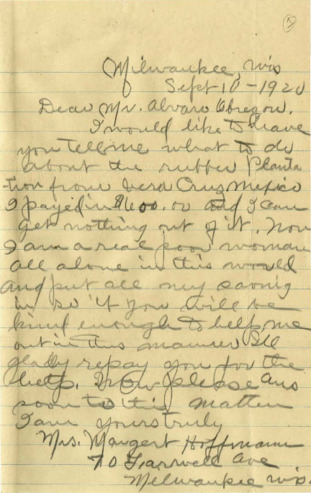 Milwaukee, Wis
Sept 10-1920
Dear Mr. Alvaro Obregon.
I would like to have
you tell me what to do
about the rubber Planta
tion from Vera Cruz Mexico
I payed in $600.00 and I can
get nothing out of it. Now
I am a real poor woman
all alone in this world
and put all my saving
in so if you will be
kind enough to help me
out in this manner I'll
gladly repay you for the
help. Now please ans
soon to this matter
I am yours truly
Mrs. Margert Hoffmann
70 Farwell Ave
Milwaukee Wis.